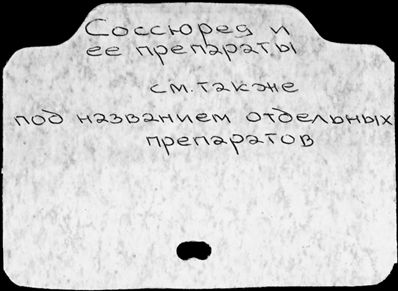 Соссюрея и
ее препараты
см. также
под названием отдельных
препаратов